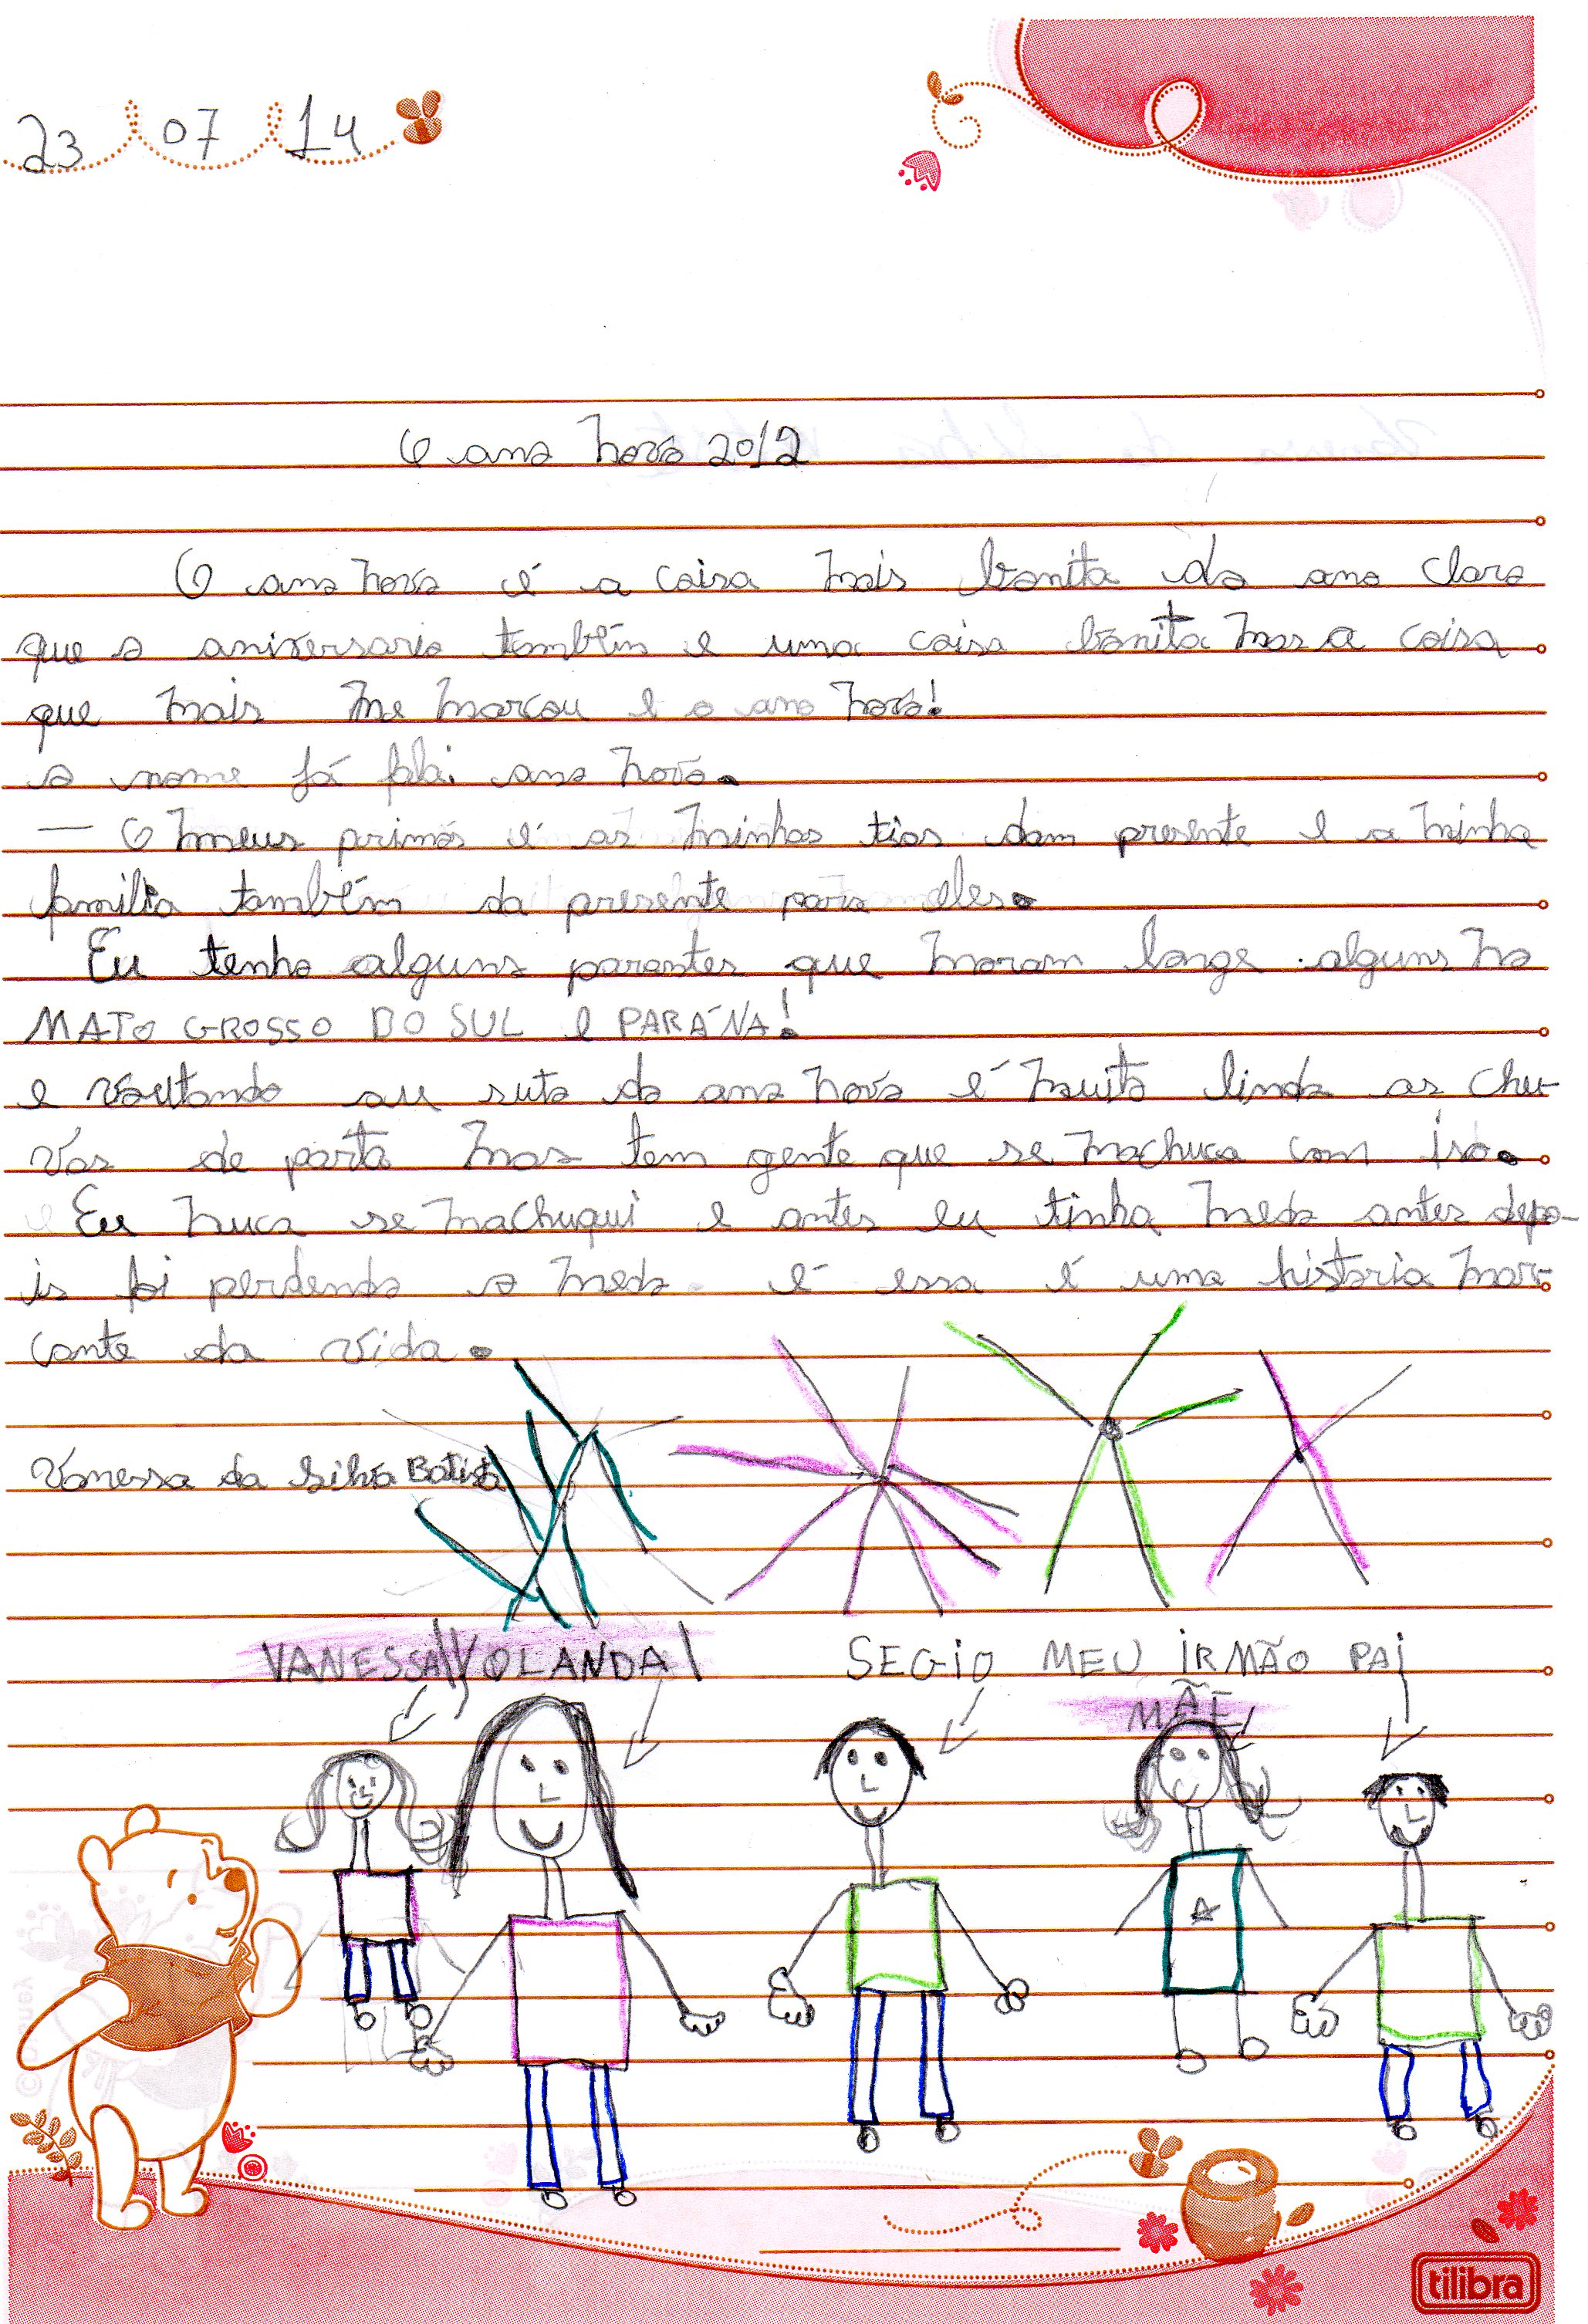 23 07 14
O ano novo 2012
O ano novo é a coisa mais bonita do ano claro
que o aniversario tambêm e uma coisa bonita mas a coisa
que mais me marcou e o ano novo!
o nome já falei ano novo.
— O meus primos é as minhas tias dam presente e a minha
familia também da presente para eles.
Eu tenho alguns parantes que moram longe. alguns no
MATO GROSSO DO SUL e PARÁNA!
e voutando au suto do ano novo é muito linda as chu-
vas de parta mas tem gente que se machuca com iso.
e Eu nuca se machuqui e antes eu tinha medo antes depo-
is foi perdendo o medo. é essa é uma historia mar-
cante da vida.
Vanessa da Silva Batista
VANESSA YOLANDA SEGIO MEU IRMÃO PAI
MÃE
A
tilibra